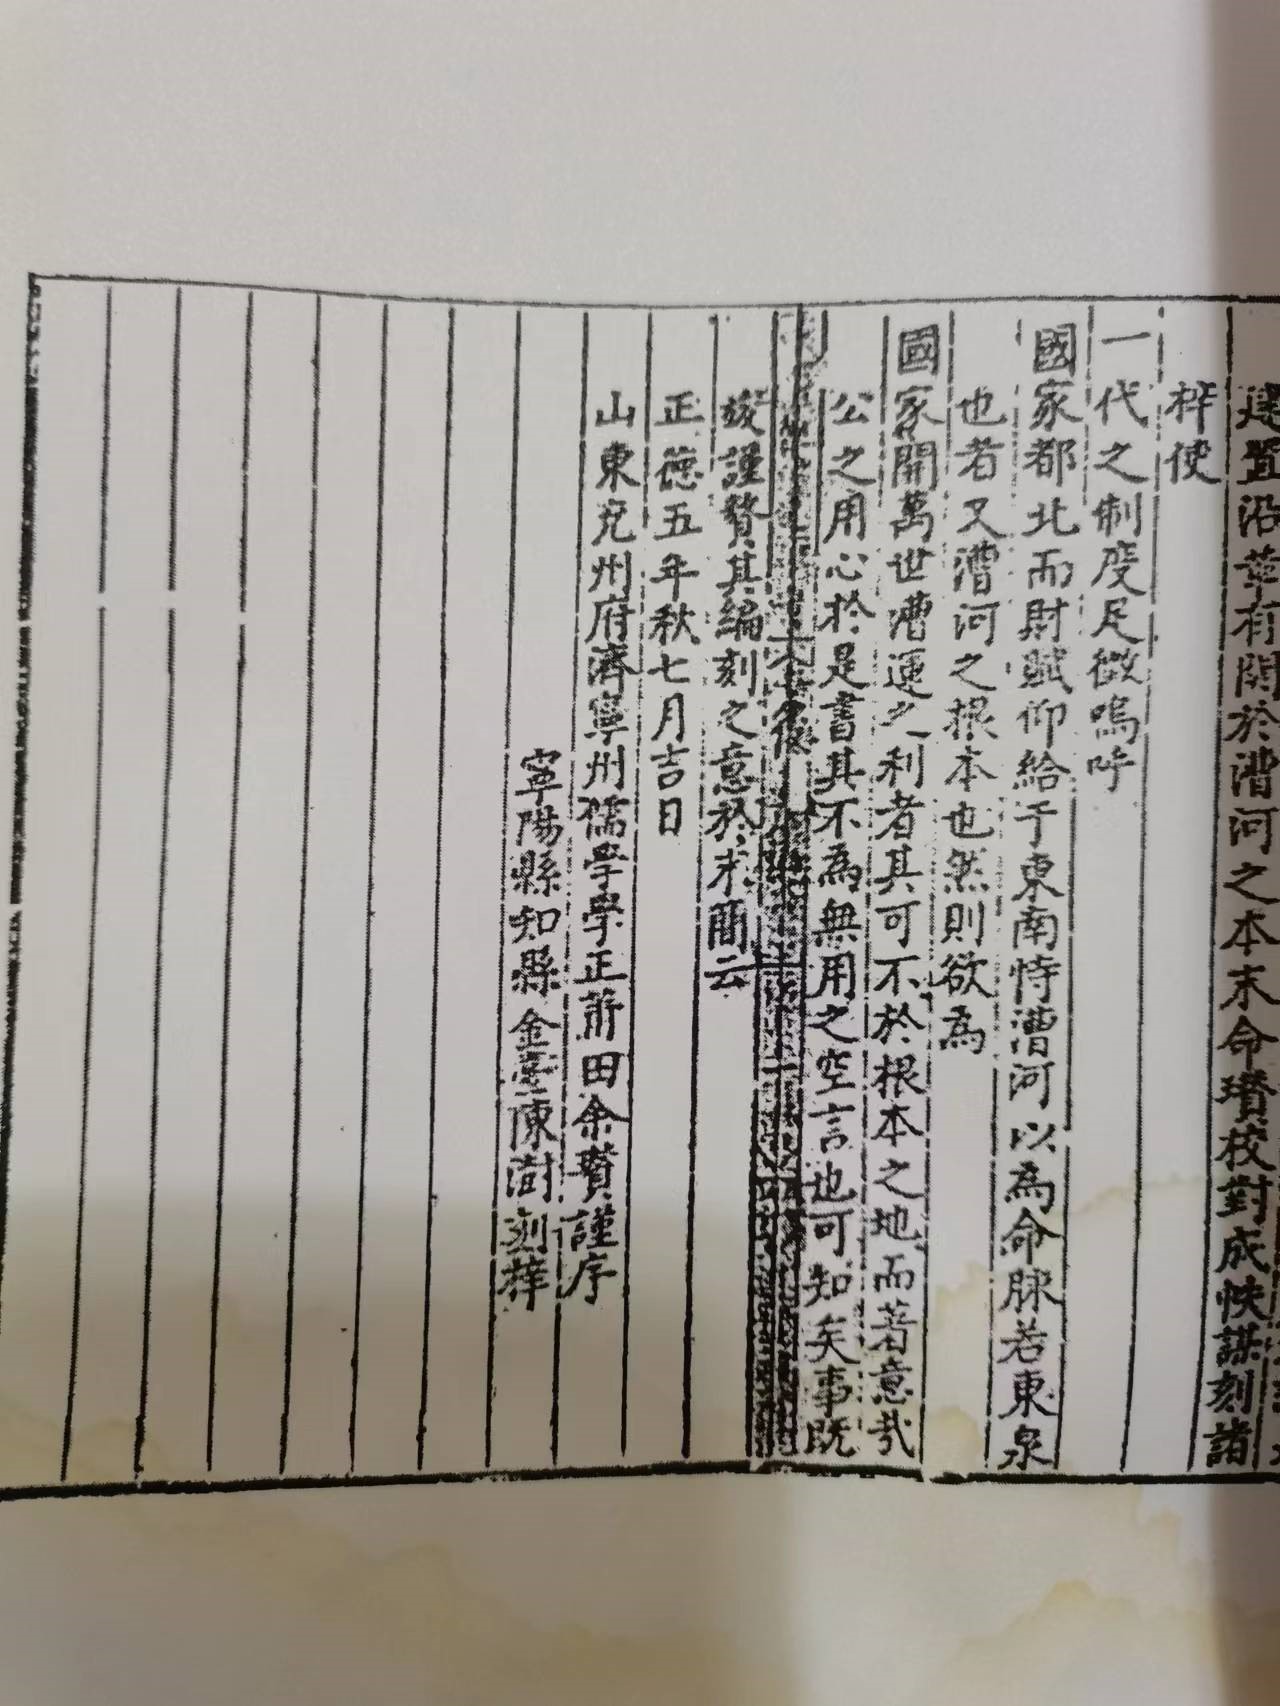 建置沿革有関於漕河之本末命瓉校對成帙謀刻諸
梓使
一代之制度足徵嗚呼
國家都北而財賦仰給于東南恃漕河以為命脉若東泉
也者又漕河之根本也然則欲為
國家開萬世漕運之利者其可不於根本之地而著意哉
公之用心於是書其不為無用之空言也可知矣事既
竣謹贅其編刻之意於末簡云
正德五年秋七月吉日
山東兖州府濟寧州儒學學正莆田余瓚謹序
寧陽縣知縣金臺陳澍刻梓